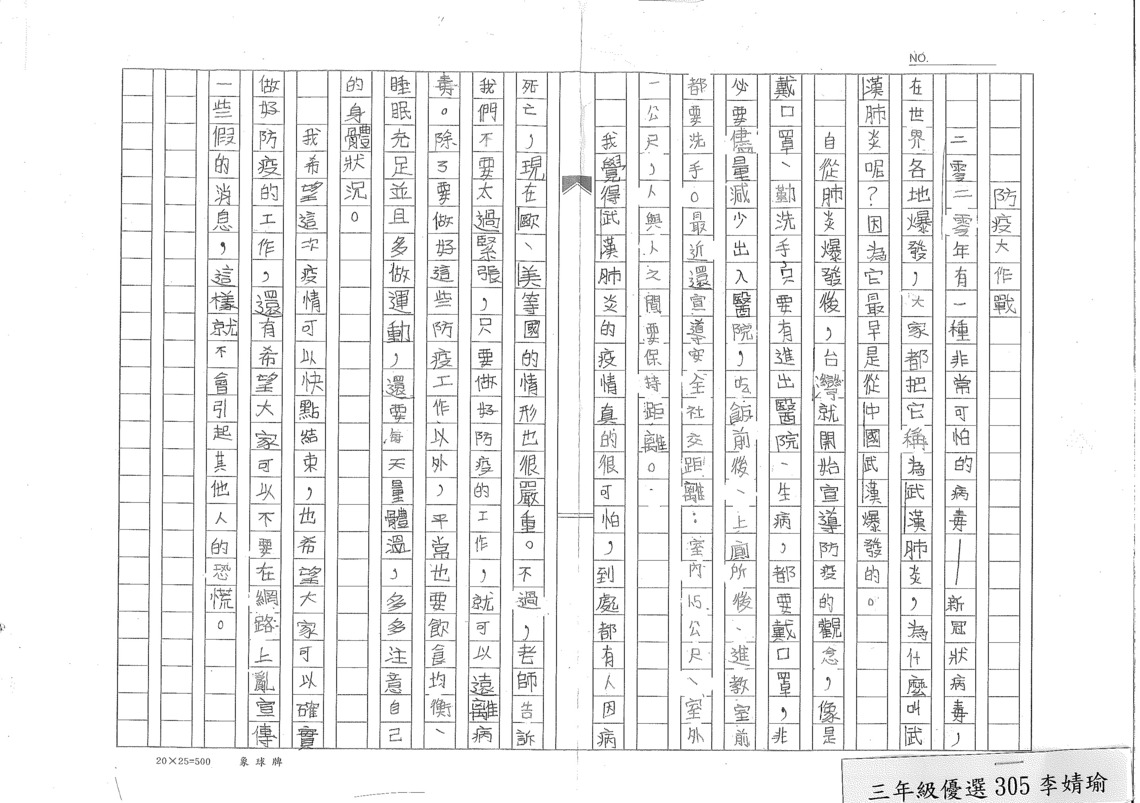 NO.
防疫大作戰
二零二零年有一種非常可怕的病毒—新冠狀病毒，
在世界各地爆發，大家都把它稱為武漢肺炎，為什麼叫武
漢肺炎呢？因為它最早是從中國武漢爆發的。
自從肺炎爆發後，台灣就開始宣導防疫的觀念，像是
戴口罩、勤洗手只要有進出醫院、生病，都要戴口罩，非
必要儘量減少出入醫院，吃飯前後、上廁所後、進教室前
都要洗手。最近還宣導安全社交距離：室內1.5公尺、室外
一公尺，人與人之間要保持距離。
我覺得武漢肺炎的疫情真的很可怕，到處都有人因病
死亡，現在歐、美等國的情形也很嚴重。不過，老師告訴
我們不要太過緊張，只要做好防疫的工作，就可以遠離病
毒。除了要做好這些防疫工作以外，平常也要飲食均衡、
睡眠充足並且多做運動，還要每天量體溫，多多注意自己
的身體狀況。
我希望這次疫情可以快點結束，也希望大家可以確實
做好防疫的工作，還有希望大家可以不要在網路上亂宣傳
一些假的消息，這樣就不會引起其他人的恐慌。
20×25=500 象球牌
三年級優選 305 李婧瑜